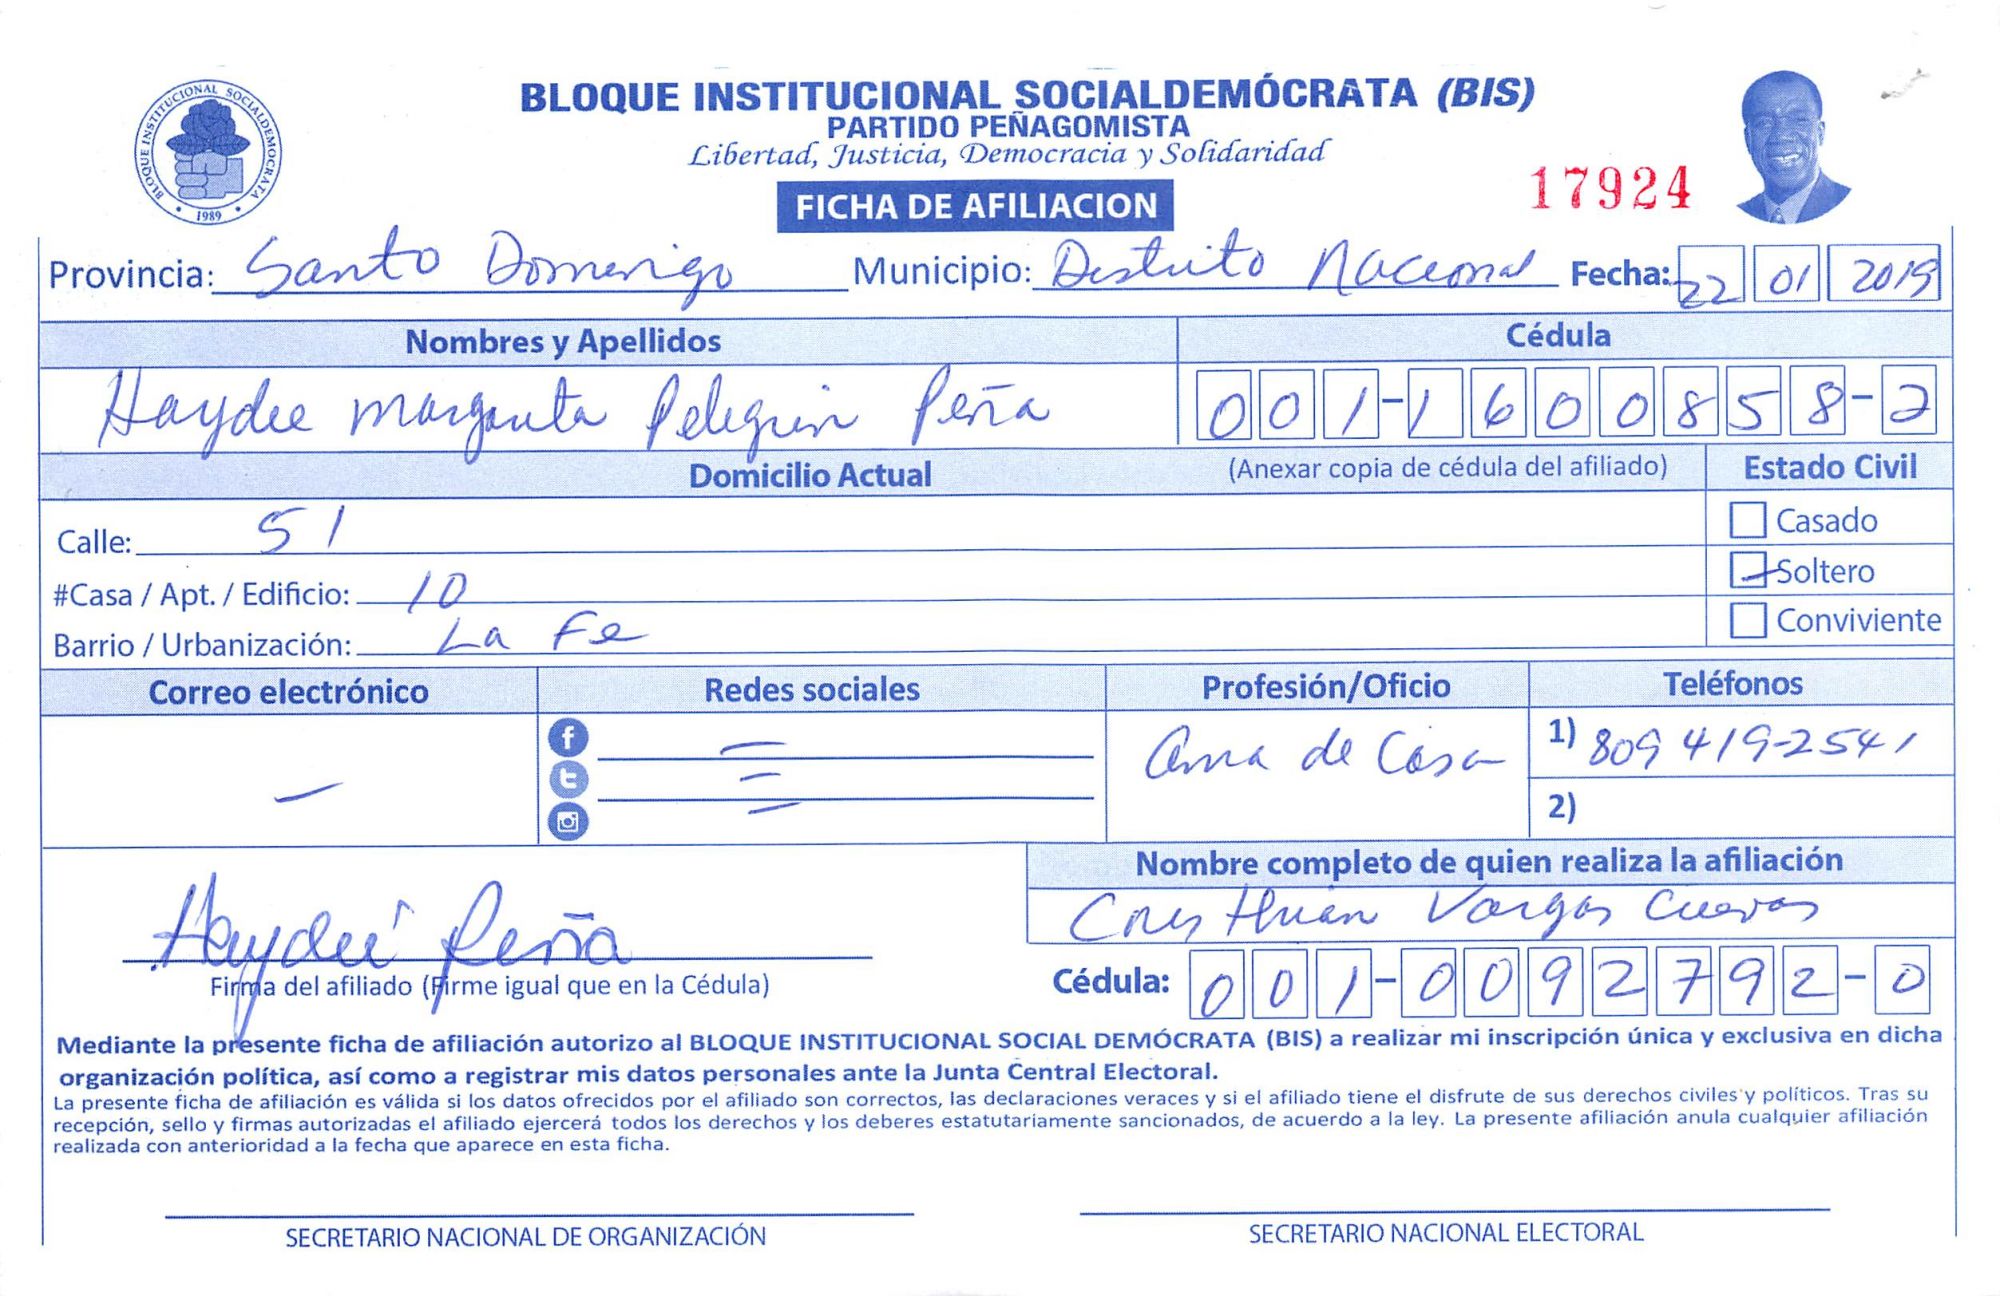 BLOQUE INSTITUCIONAL SOCIALDEMÓCRATA (BIS)
PARTIDO PEÑAGOMISTA
Libertad, Justicia, Democracia y Solidaridad
BLOQUE INSTITUCIONAL SOCIALDEMOCRATA
• 1989 •
17924
FICHA DE AFILIACION
Provincia: Santo Domingo Municipio: Distrito Nacional Fecha: 22 01 2019
Nombres y Apellidos Cédula
Haydee Margarita Pelegrin Peña 001-1600858-2
Domicilio Actual (Anexar copia de cédula del afiliado) Estado Civil
Calle: 51 Casado
#Casa / Apt. / Edificio: 10 Soltero
Barrio / Urbanización: La Fe Conviviente
Correo electrónico Redes sociales Profesión/Oficio Teléfonos
— — — — Ama de Casa 1) 809 419-2541
2)
Nombre completo de quien realiza la afiliación
Cristhian Vargas Cuevas
Haydeé Peña
Firma del afiliado (Firme igual que en la Cédula) Cédula: 001-0092792-0
Mediante la presente ficha de afiliación autorizo al BLOQUE INSTITUCIONAL SOCIAL DEMÓCRATA (BIS) a realizar mi inscripción única y exclusiva en dicha
organización política, así como a registrar mis datos personales ante la Junta Central Electoral.
La presente ficha de afiliación es válida si los datos ofrecidos por el afiliado son correctos, las declaraciones veraces y si el afiliado tiene el disfrute de sus derechos civiles y políticos. Tras su
recepción, sello y firmas autorizadas el afiliado ejercerá todos los derechos y los deberes estatutariamente sancionados, de acuerdo a la ley. La presente afiliación anula cualquier afiliación
realizada con anterioridad a la fecha que aparece en esta ficha.
SECRETARIO NACIONAL DE ORGANIZACIÓN SECRETARIO NACIONAL ELECTORAL